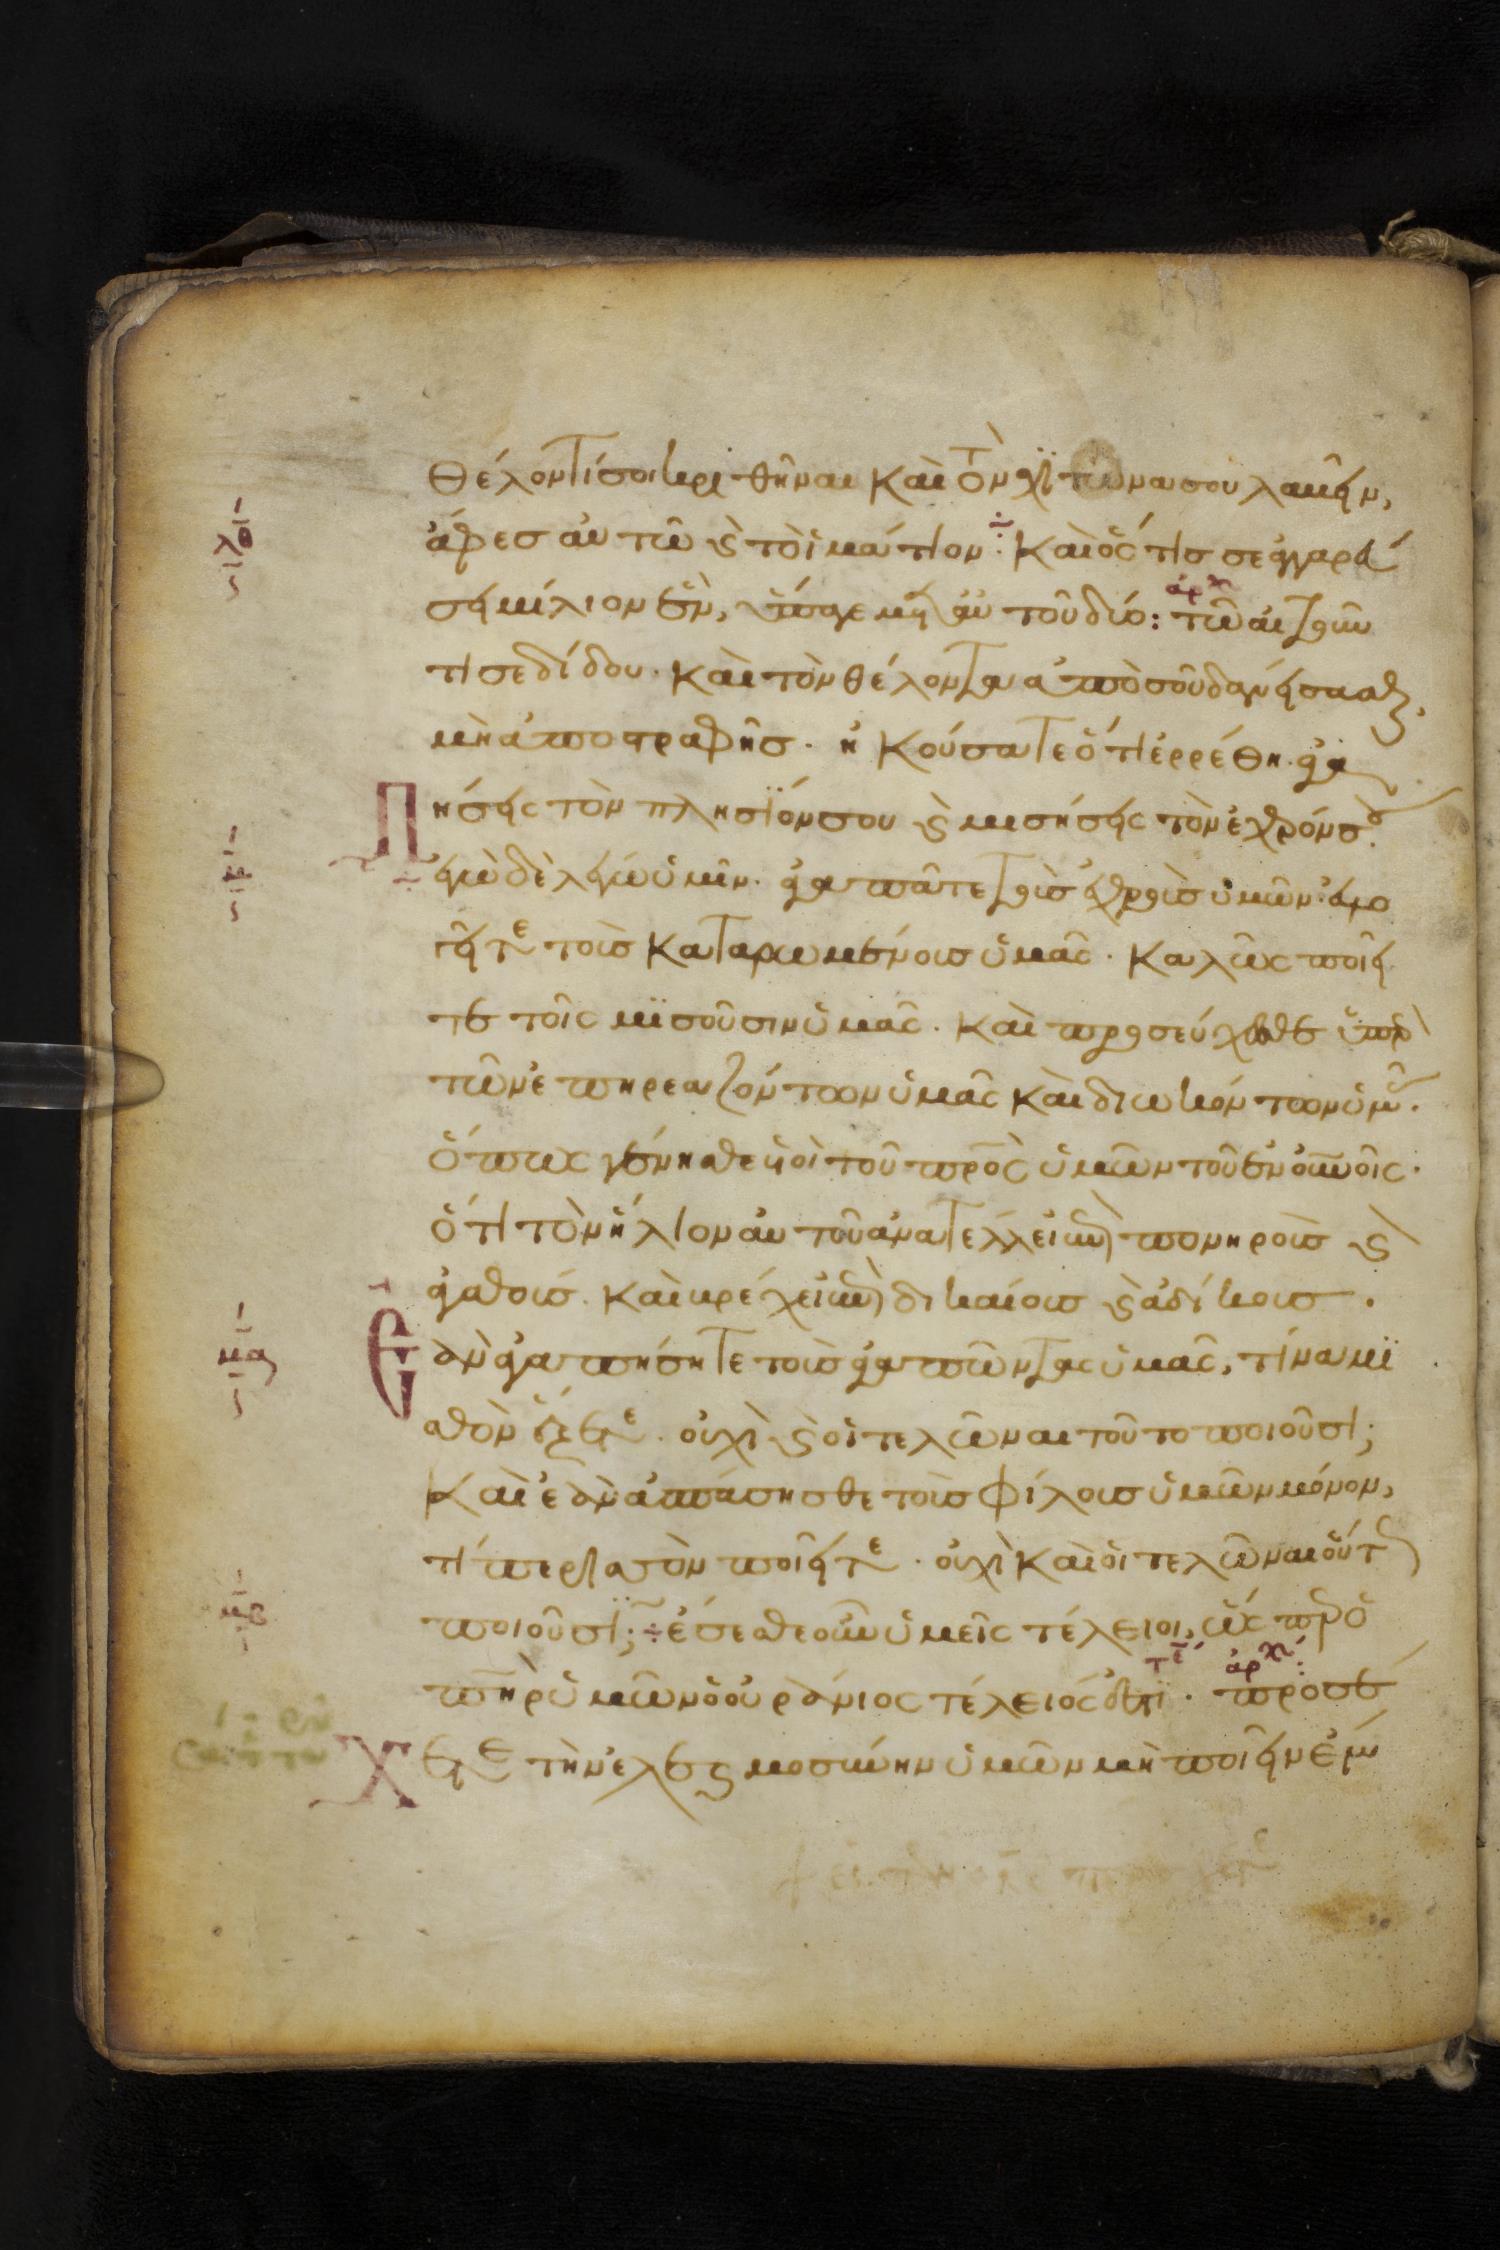 θέλοντί σοι κριθῆναι καὶ τὸν χϊτῶνα σου λαβεῖν,
λθ
ἄφες αὐτῶ ϗ τὸ ἱμάτιον : Καὶ ὅς τίς σε ἀγγαρεύ
σει μίλιον ἓν, ὕπαγε μετ αὐτοῦ δύο : τῶ αἰτοῦν
ἀρχ
τί σε δίδου · Καὶ τὸν θέλοντα ἀπὸ σοῦ δανείσασθαι,
μὴ ἀποστραφῆς · ἠκούσατε ὅτι ἐρρέθη · ἀγα
Πήσεις τὸν πλησϊόν σου ϗ μισήσεις τὸν ἐχθρόν σου.
μ
ἐγὼ δὲ λέγω ὑμῖν · ἀγαπᾶτε τοὺς ἐχθροὺς ὑμῶν · εὐλο
γεῖτε τοὺς καταρωμένους ὑμᾶς · Καλῶς ποιεῖ
τε τοῖς μϊσοῦσιν ὑμᾶς · καὶ προσεύχεσθε ὑπὲρ
τῶν ἐπηρεαζόντων ὑμᾶς καὶ διωκόντων ὑμᾶς ·
ὅπως γένησθε υἱοὶ τοῦ πρς ὑμῶν τοῦ ἐν οὐνοῖς ·
ὅτι τὸν ἥλιον αὐτοῦ ἀνατέλλει ἐπὶ πονηροὺς ϗ
ἀγαθούς · Καὶ βρέχει ἐπὶ δικαίους ϗ ἀδίκους ·
μα
Ἐὰν ἀγαπήσητε τοὺς ἀγαπῶντας ὑμᾶς, τίνα μϊ
σθὸν ἔχετε · οὐχὶ ϗ οἱ τελῶναι τοῦτο ποιοῦσι;
Καὶ ἐὰν ἀσπάσησθε τοὺς φίλους ὑμῶν μόνον,
τί περισσὸν ποιεῖτε · οὐχὶ καὶ οἱ τελῶναι οὕτω
μβ
ποιοῦσϊ; ἔσεσθε οὖν ὑμεῖς τέλειοι, ὡς πὲρ ὁ
πηρ ὑμῶν ὁ οὐράνιος τέλειός ἐστϊ · προσέ
τε ἀρχ
Χετε τὴν ἐλεημοσύνην ὑμῶν μὴ ποιεῖν ἔμ